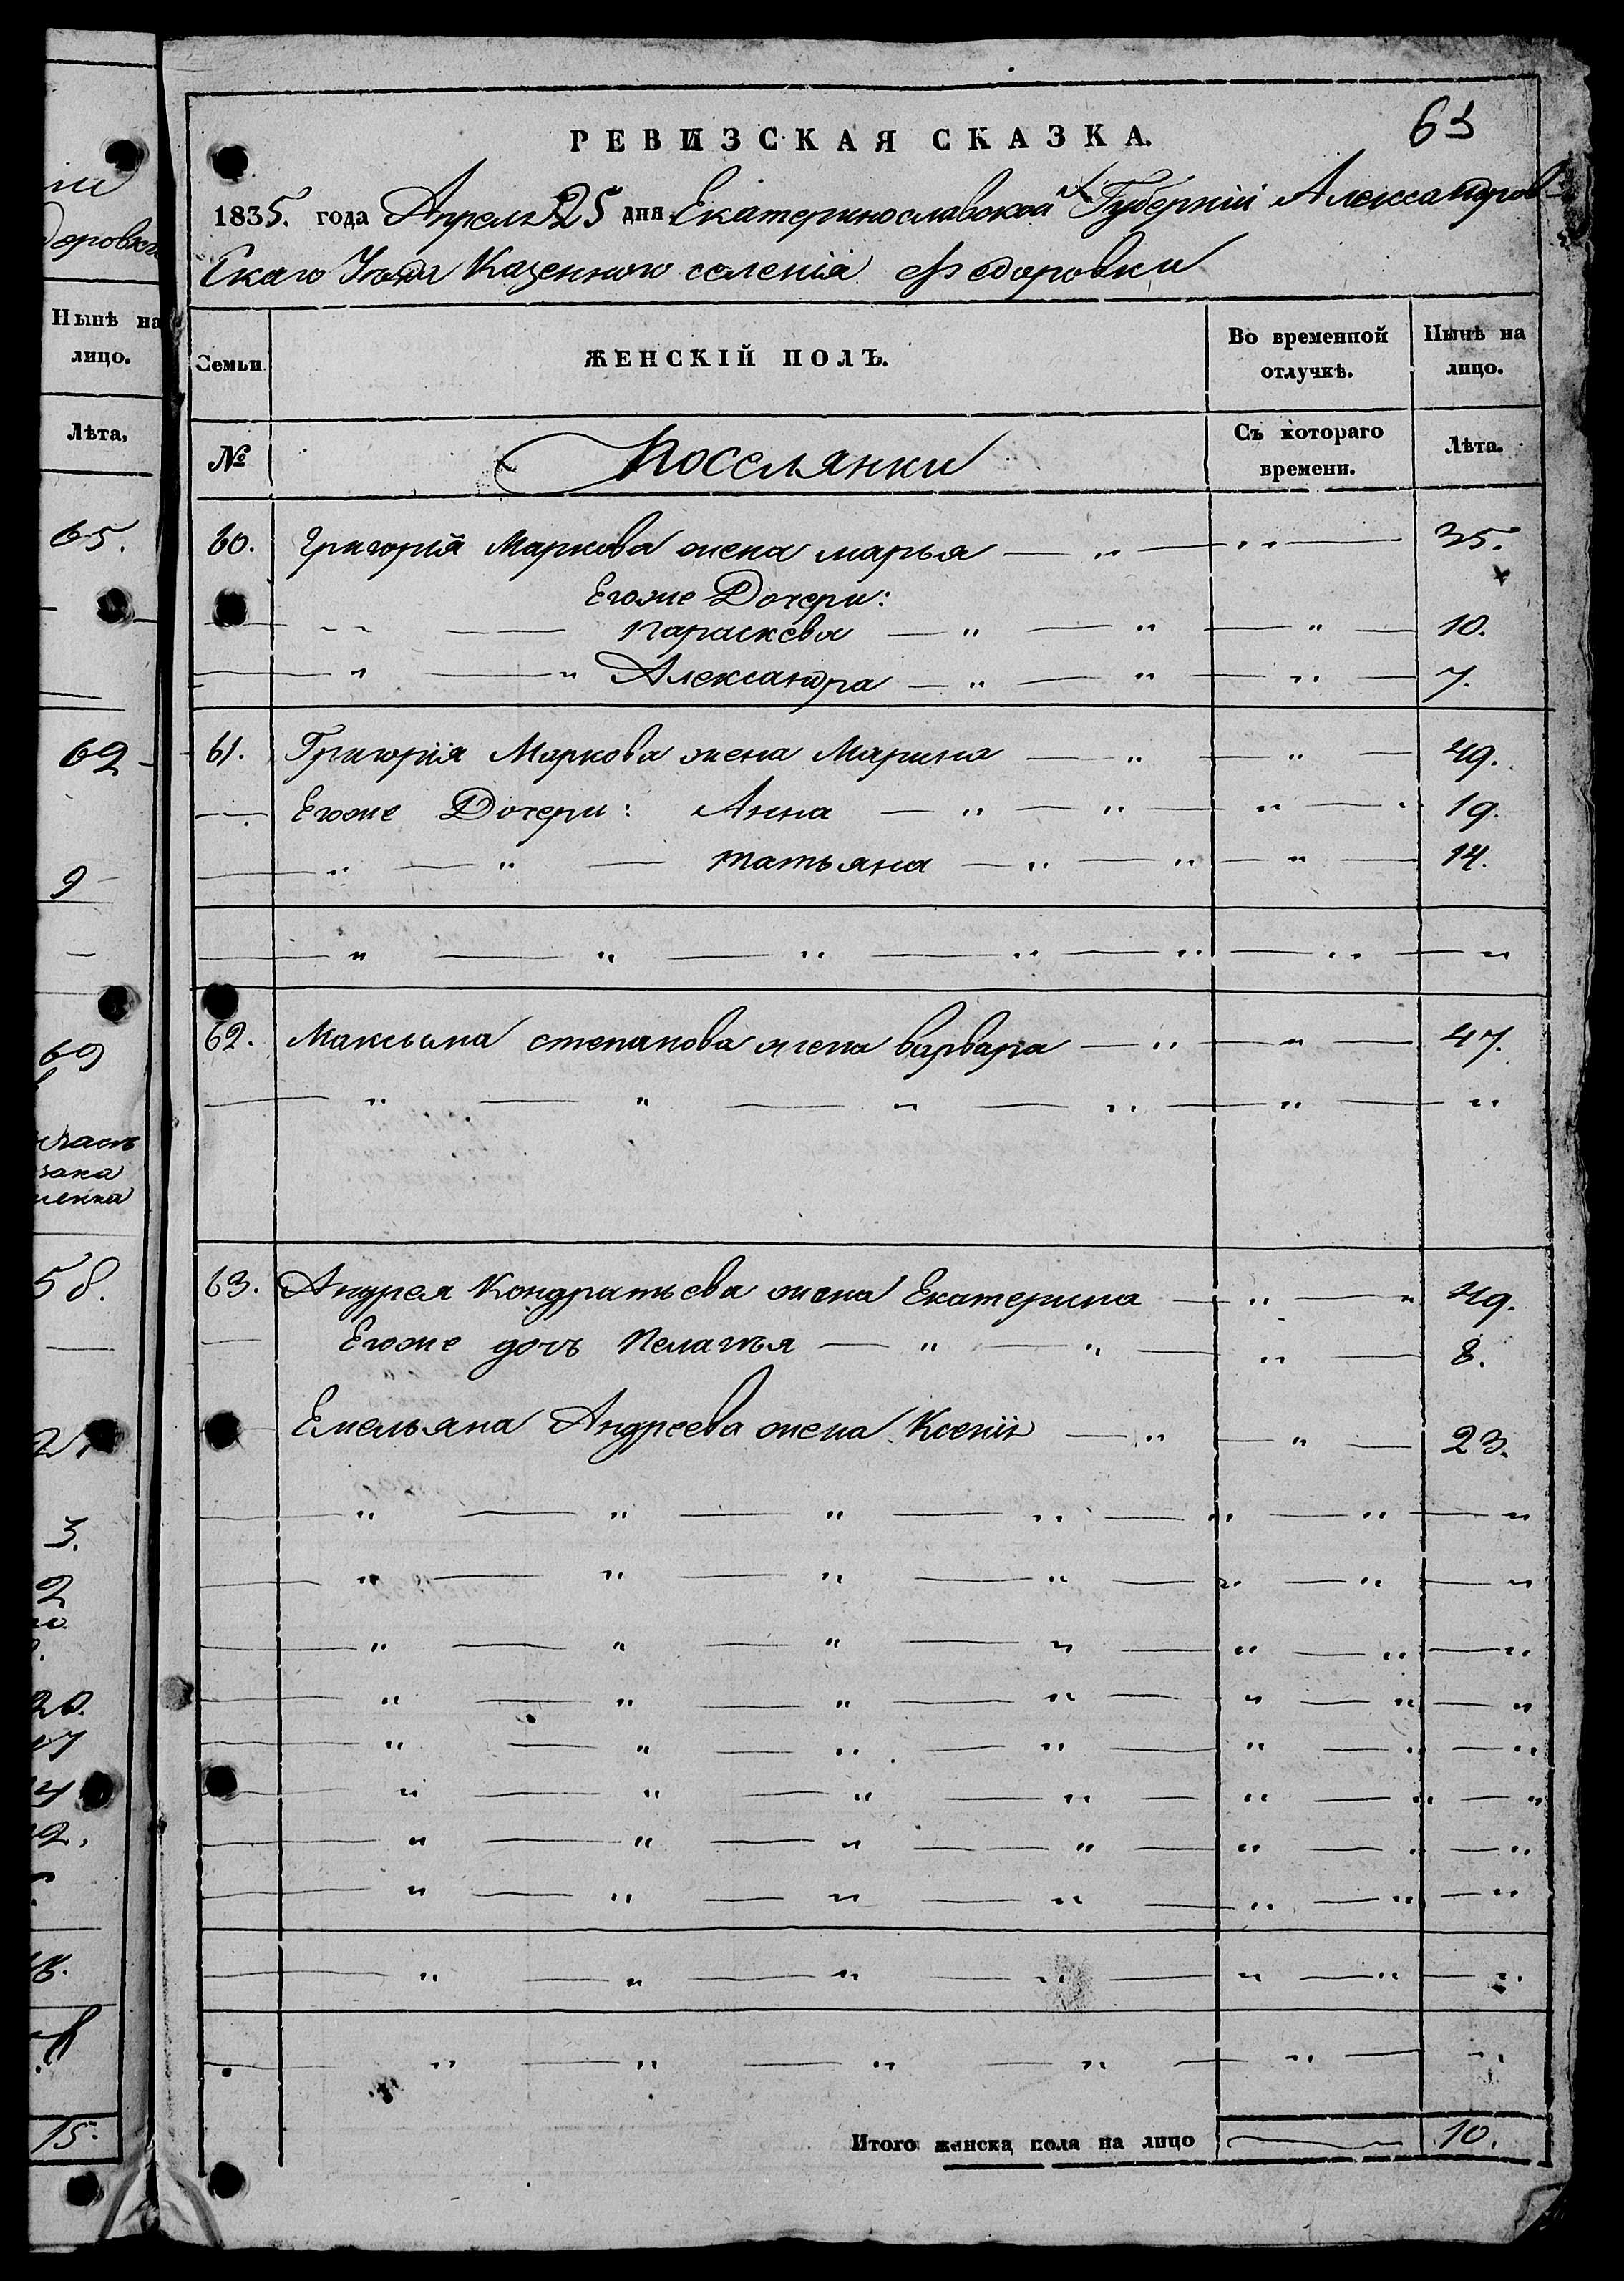 РЕВИЗСКАЯ СКАЗКА.
63
1835. года Апреля 25 дня Екатеринославской Губерніи Александров
Скаго Уезда Казенного селенія Федоровки
Нынѣ на
лицо.
Лѣта,
65.
62
9
69
58.
3.
2
15.
Семьи
ЖЕНСКІЙ ПОЛЪ.
Во временной
отлучкѣ.
Нынѣ на
лицо.
№
Поселянки
Съ котораго
времени.
Лѣта.
60. Григорія Маркова жена марья — „ — „ — 35.
Егоже Дочери:
Параскева — „ — „ — „ — 10.
— „ — „ Александра — „ — „ — „ — 7.
61. Григорія Маркова жена Марина — „ — „ — 49.
Егоже Дочери: Анна — „ — „ — „ — 19.
— „ — „ — татьяна — „ — „ — „ — 14.
— „ — „ — „ — „ — „ — „ — „
62. Максима степанова жена варвара — „ — „ — 47.
— „ — „ — „ — „ — „ — „
63. Андрея Кондратьева жена Екатерина — „ — „ 49.
Егоже дочь Пелагея — „ — „ — „ — 8.
Емельяна Андреева жена Ксенія — „ — „ — 23.
— „ — „ — „ — „ — „ — „ — „
— „ — „ — „ — „ — „ — „ — „
— „ — „ — „ — „ — „ — „ — „
— „ — „ — „ — „ — „ — „ — „
— „ — „ — „ — „ — „ — „ — „
— „ — „ — „ — „ — „ — „ — „
— „ — „ — „ — „ — „ — „ — „
— „ — „ — „ — „ — „ — „ — „
— „ — „ — „ — „ — „ — „ — „
— „ — „ — „ — „ — „ — „
Итого женска пола на лицо — 10.